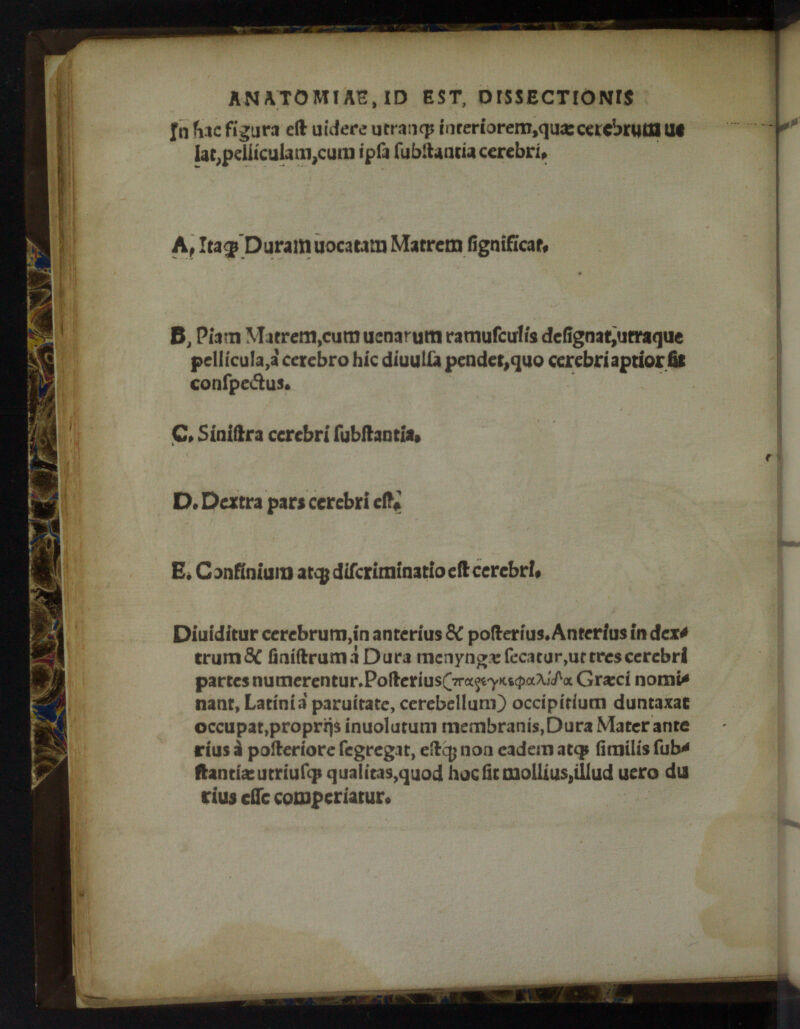 ANATOMIAE, ID EST, DISSECTIONIS
In hac figura eſt uidere utranqꝫ interiorem,quæ cerebrum ue
lat,pelliculam,cum ipſa ſubſtantia cerebri,
A, Itaqꝫ Duram uocatam Matrem ſignificat,
B, Piam Matrem,cum uenarum ramuſculis deſignat,utraque
pellicula,à cerebro hic diuulſa pendet,quo cerebri aptior ſit
conſpectus.
C, Siniſtra cerebri ſubſtantia,
D. Dextra pars cerebri eſt,
E. Confinium atqꝫ diſcriminatio eſt cerebri,
Diuiditur cerebrum,in anterius & poſterius.Anterius in dex⸗
trum & ſiniſtrum à Dura menyngæ ſecatur,ut tres cerebri
partes numerentur.Poſterius(παρεγκεφαλίδα Græci nomi⸗
nant, Latini à paruitate, cerebellum) occipitium duntaxat
occupat,proprijs inuolutum membranis,Dura Mater ante
rius à poſteriore ſegregat, eſtqꝫ non eadem atqꝫ ſimilis ſub⸗
ſtantiæ utriuſqꝫ qualitas,quod hoc ſit mollius,illud uero du
rius eſſe comperiatur.